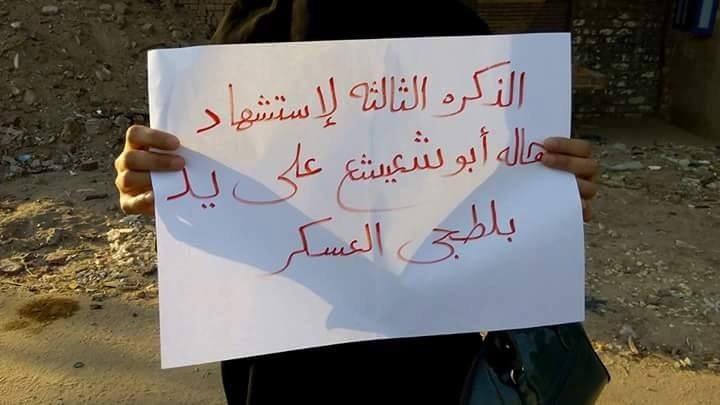 الذكره الثالثه لإستشهاد
هاله أبو شعيشع على يد
بلطجى العسكر